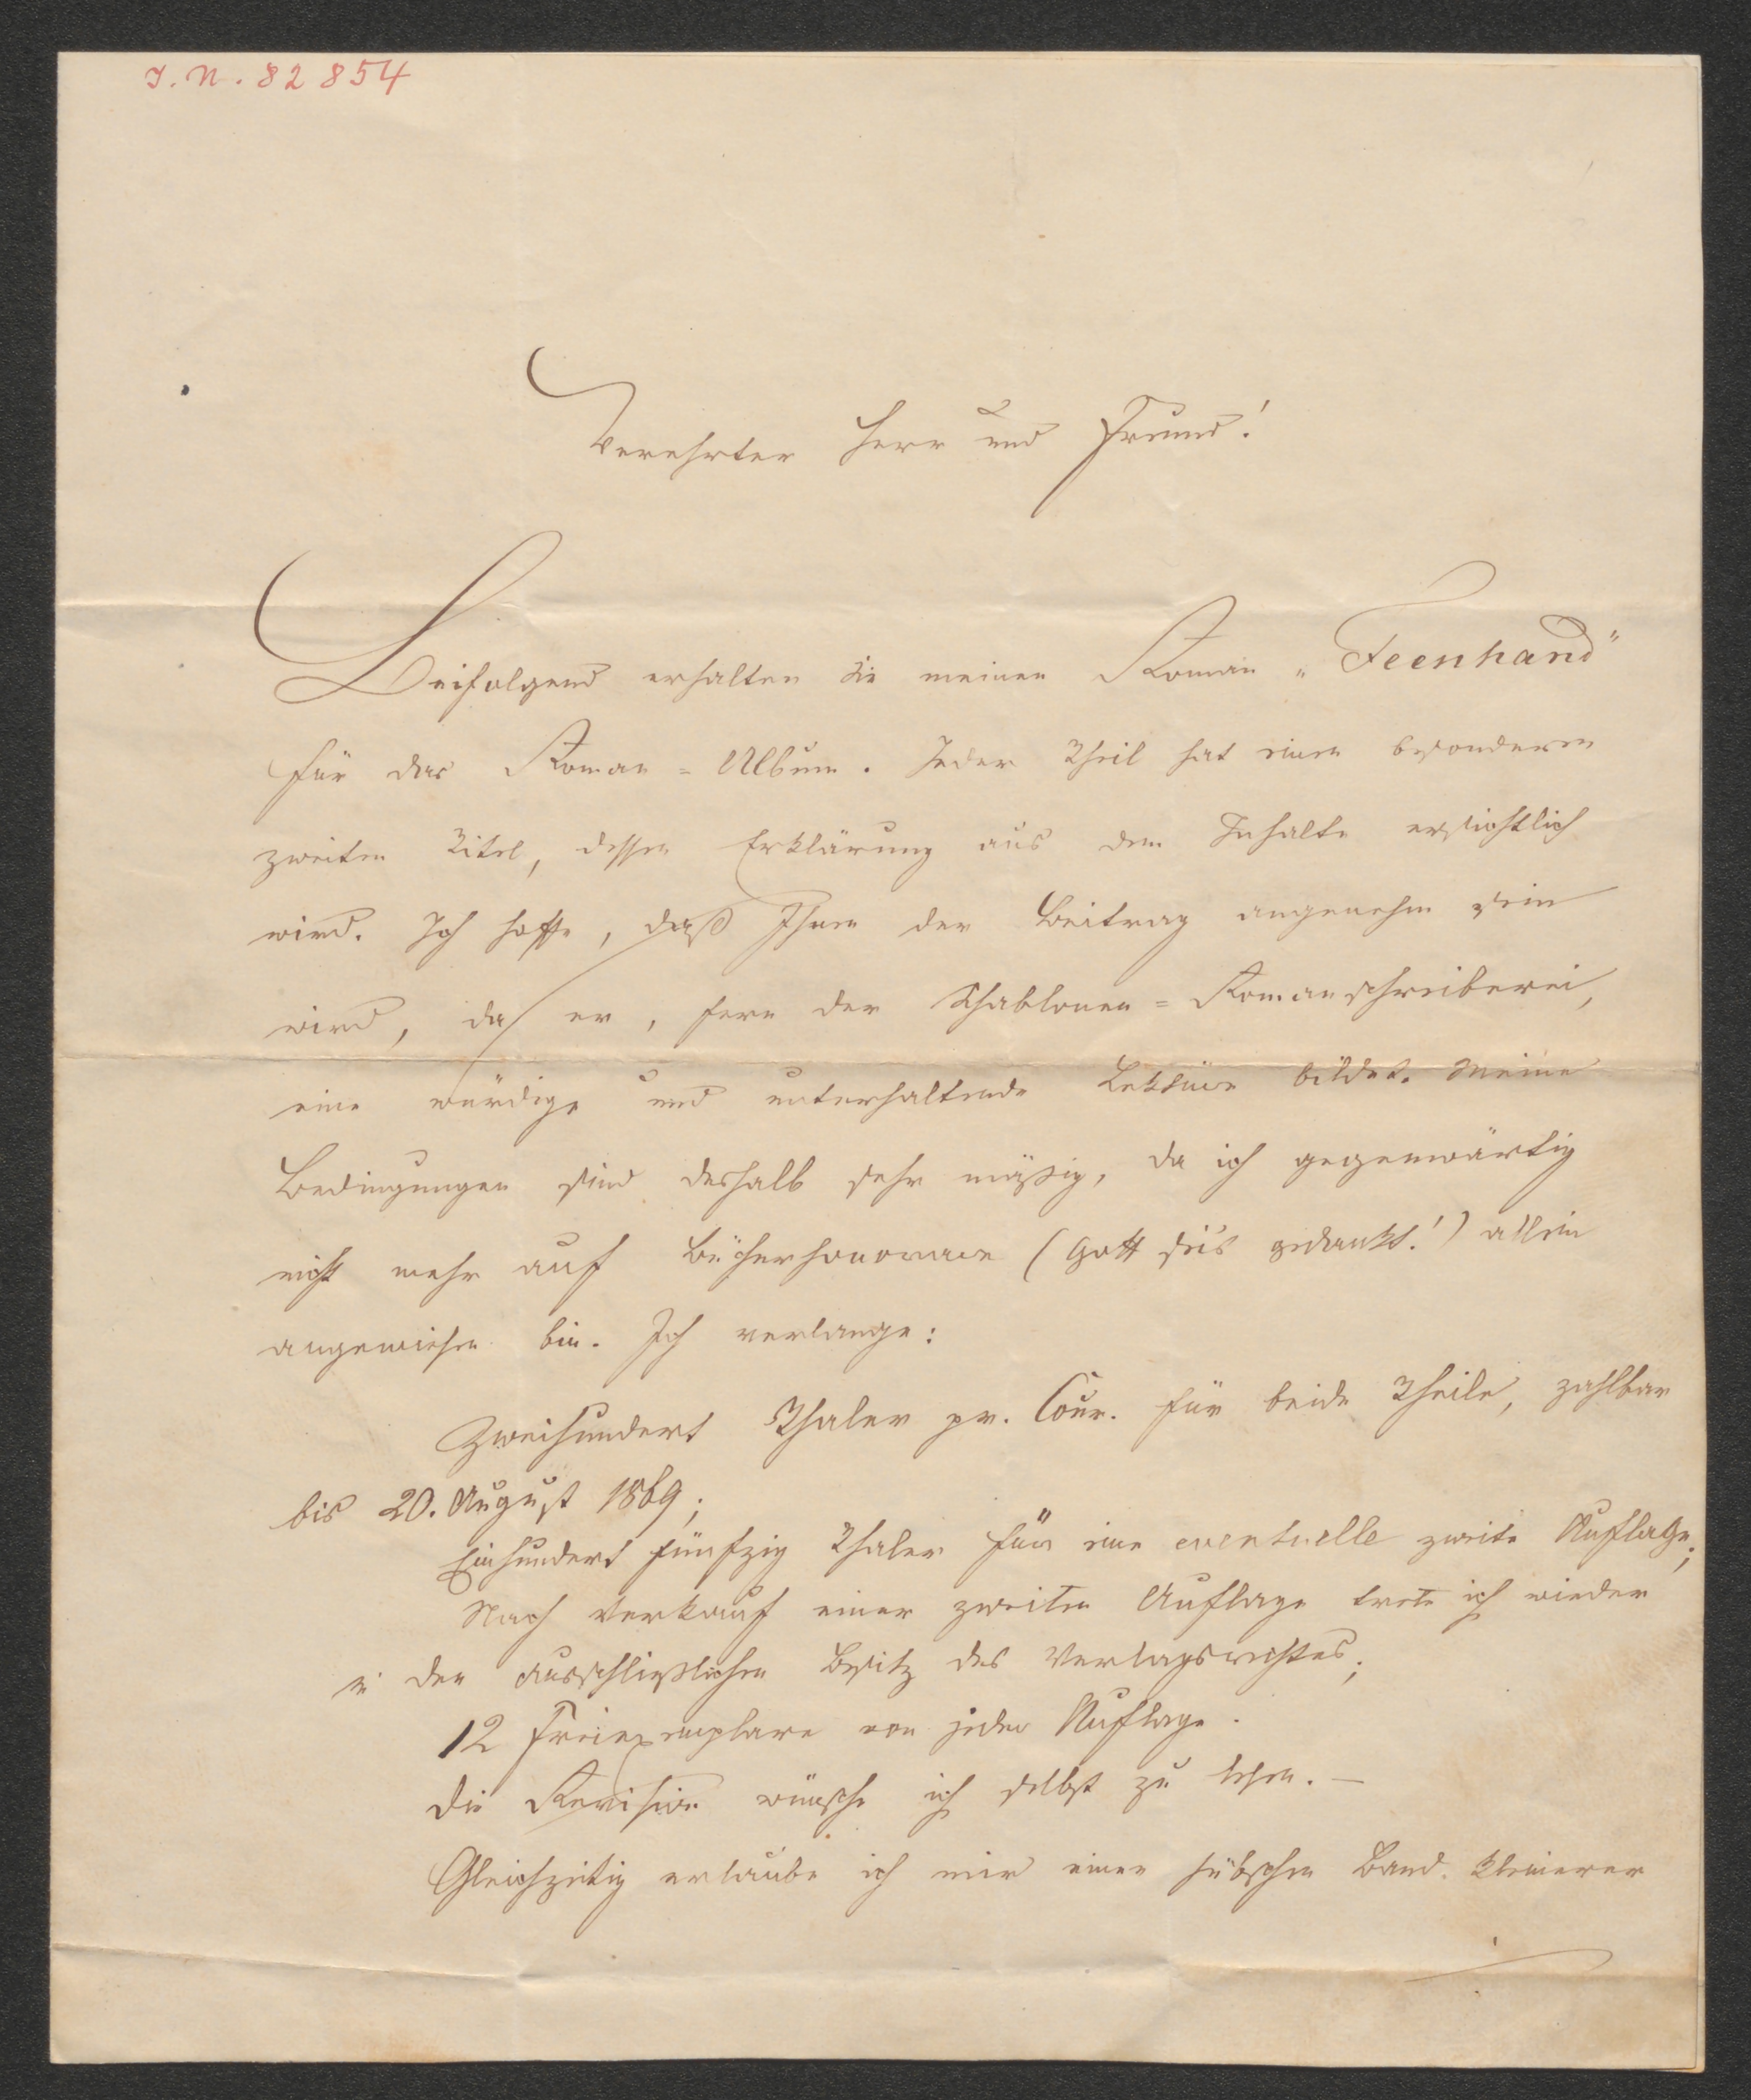 I. N. 82 854
Verehrter Herr und Freund!
Beifolgend erhalten Sie meinen Roman „Feenhand"
für das Roman=Album. Jeder Theil hat einen besonderen
zweiten Titel, dessen Erklärung aus dem Inhalte ersichtlich
wird. Ich hoffe, daß Ihnen der Beitrag angenehm sein
wird, da er, fern der Schablonen=Romanschreiberei,
eine würdige und unterhaltende Lektüre bildet. Meine
Bedingungen sind deshalb sehr mäßig, da ich gegenwärtig
nicht mehr auf Bücherhonorare (Gott sei's gedankt!) allein
angewiesen bin. Ich verlange:
Zweihundert Thaler pr. Cour. für beide Theile, zahlbar
bis 20. August 1869;
Einhundert fünfzig Thaler für eine eventuelle zweite Auflage;
Nach Verkauf einer zweiten Auflage trete ich wieder
in den ausschließlichen Besitz des Verlagsrechtes;
12 Freiexemplare von jeder Auflage.
Die Revision wünsche ich selbst zu lesen. —
Gleichzeitig erlaube ich mir einen hübschen Band kleinerer